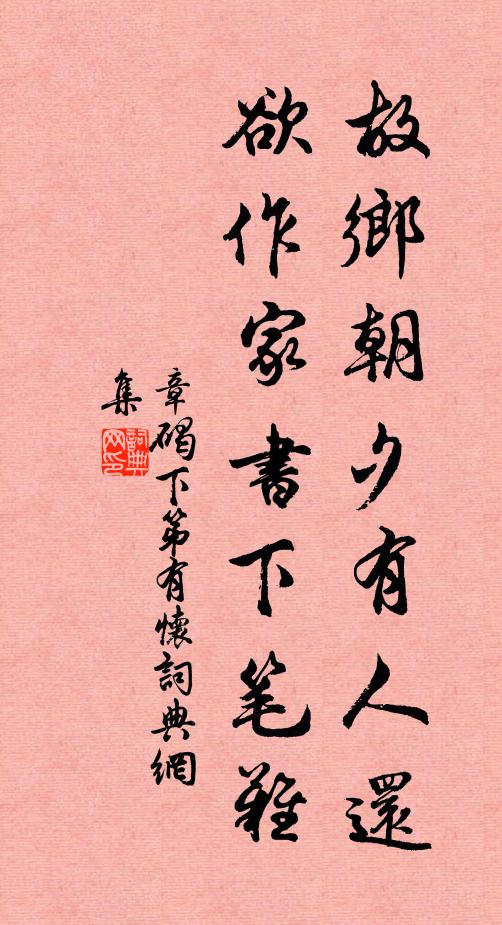 故鄉朝夕有人還
欲作家書下笔難
章碣下第有懷詞典網
集
詞典
网印